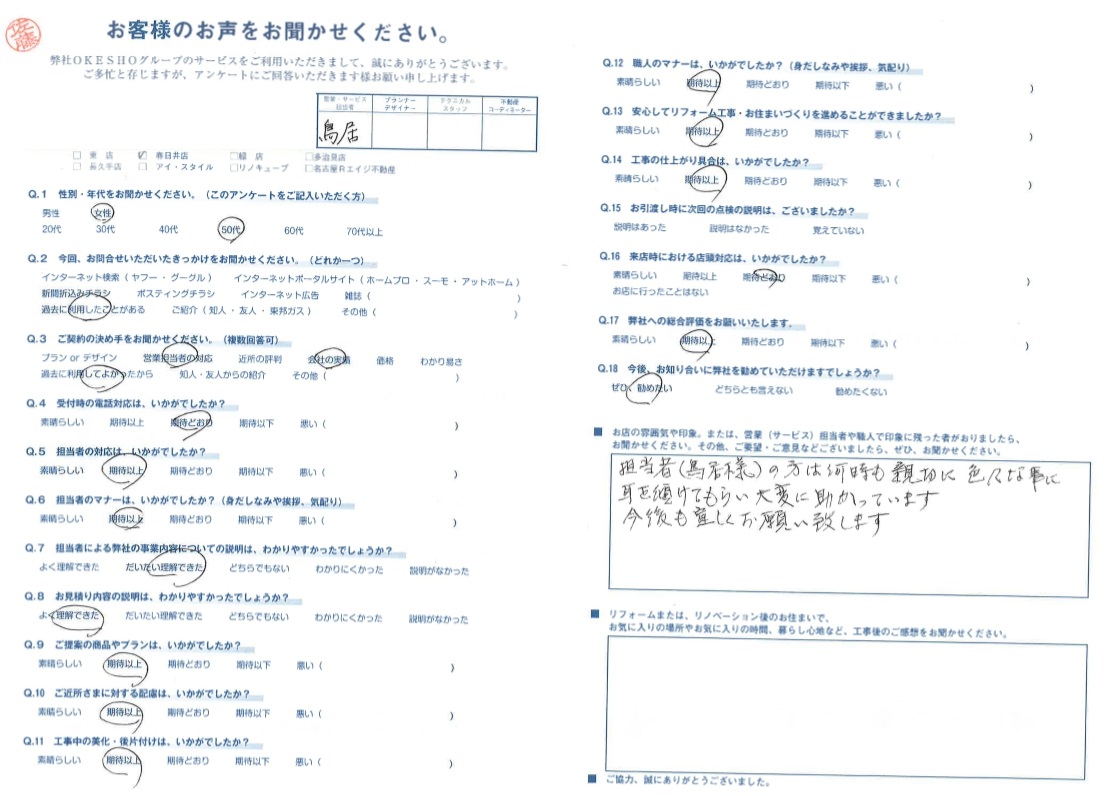 佐藤
お客様のお声をお聞かせください。
弊社OKESHOグループのサービスをご利用いただきまして、誠にありがとうございます。
ご多忙と存じますが、アンケートにご回答いただきます様お願い申し上げます。
営業・サービス担当者 プランナーデザイナー テクニカルスタッフ 不動産コーディネーター
鳥居
□ 東 店 ☑ 春日井店 □緑 店 □多治見店
□ 長久手店 □ アイ・スタイル □リノキューブ □名古屋Rエイジ不動産
Q.1 性別・年代をお聞かせください。（このアンケートをご記入いただく方）
男性 女性
20代 30代 40代 50代 60代 70代以上
Q.2 今回、お問合せいただいたきっかけをお聞かせください。（どれか一つ）
インターネット検索（ ヤフー ・ グーグル ） インターネットポータルサイト（ ホームプロ ・ スーモ ・ アットホーム ）
新聞折込みチラシ ポスティングチラシ インターネット広告 雑誌（ ）
過去に利用したことがある ご紹介（ 知人 ・ 友人 ・ 東邦ガス ） その他（ ）
Q.3 ご契約の決め手をお聞かせください。（複数回答可）
プラン or デザイン 営業担当者の対応 近所の評判 会社の実績 価格 わかり易さ
過去に利用してよかったから 知人・友人からの紹介 その他（ ）
Q.4 受付時の電話対応は、いかがでしたか？
素晴らしい 期待以上 期待どおり 期待以下 悪い（ ）
Q.5 担当者の対応は、いかがでしたか？
素晴らしい 期待以上 期待どおり 期待以下 悪い（ ）
Q.6 担当者のマナーは、いかがでしたか？（身だしなみや挨拶、気配り）
素晴らしい 期待以上 期待どおり 期待以下 悪い（ ）
Q.7 担当者による弊社の事業内容についての説明は、わかりやすかったでしょうか？
よく理解できた だいたい理解できた どちらでもない わかりにくかった 説明がなかった
Q.8 お見積り内容の説明は、わかりやすかったでしょうか？
よく理解できた だいたい理解できた どちらでもない わかりにくかった 説明がなかった
Q.9 ご提案の商品やプランは、いかがでしたか？
素晴らしい 期待以上 期待どおり 期待以下 悪い（ ）
Q.10 ご近所さまに対する配慮は、いかがでしたか？
素晴らしい 期待以上 期待どおり 期待以下 悪い（ ）
Q.11 工事中の美化・後片付けは、いかがでしたか？
素晴らしい 期待以上 期待どおり 期待以下 悪い（ ）
Q.12 職人のマナーは、いかがでしたか？（身だしなみや挨拶、気配り）
素晴らしい 期待以上 期待どおり 期待以下 悪い（ ）
Q.13 安心してリフォーム工事・お住まいづくりを進めることができましたか？
素晴らしい 期待以上 期待どおり 期待以下 悪い（ ）
Q.14 工事の仕上がり具合は、いかがでしたか？
素晴らしい 期待以上 期待どおり 期待以下 悪い（ ）
Q.15 お引渡し時に次回の点検の説明は、ございましたか？
説明はあった 説明はなかった 覚えていない
Q.16 来店時における店頭対応は、いかがでしたか？
素晴らしい 期待以上 期待どおり 期待以下 悪い（ ）
お店に行ったことはない
Q.17 弊社への総合評価をお願いいたします。
素晴らしい 期待以上 期待どおり 期待以下 悪い（ ）
Q.18 今後、お知り合いに弊社を勧めていただけますでしょうか？
ぜひ、勧めたい どちらとも言えない 勧めたくない
■ お店の雰囲気や印象。または、営業（サービス）担当者や職人で印象に残った者がおりましたら、
お聞かせください。その他、ご要望・ご意見などございましたら、ぜひ、お聞かせください。
担当者(鳥居様)の方は何時も親切に色々な事に
耳を傾けてもらい大変に助かっています
今後も宜しくお願い致します
■ リフォームまたは、リノベーション後のお住まいで、
お気に入りの場所やお気に入りの時間、暮らし心地など、工事後のご感想をお聞かせください。
■ ご協力、誠にありがとうございました。